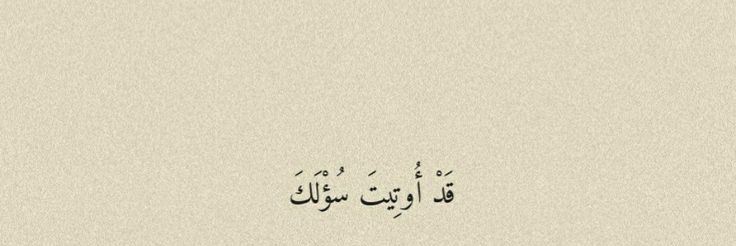 قَدْ أُوتِيتَ سُؤْلَكَ